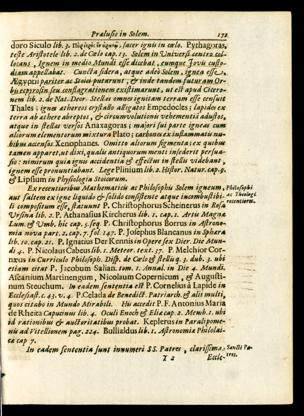 Prælusio in Solem. 171
doro Siculo lib. 3. sacer ignis in cælo. Pythagoras,
teste Aristotele lib. 2. de Cælo cap. 13. Solem in Universi centro col-
locans, Ignem in medio Mundi esse dicebat, eumque Jovis custo-
diam appellabat. Cuncta sidera, atque adeo Solem, ignea esse,
Ægyptii pariter ac Stoici putarunt, & inde tandem futuram Or-
bis expressim seu conflagrationem existimarunt, ut est apud Cicero-
nem lib. 2. de Nat. Deor. Stellas omnes ignitam terram esse censuit
Thales: ignea æthereo crystallo alligata Empedocles: lapides ex
terra ab æthere abreptos, & circumvolutionis vehementiâ adustos,
atque in stellas versos Anaxagoras: majori sui parte igneas cum
aliorum elementorum mixtura Plato: carbones ex inflammatis nu-
bibus accensos Xenophanes. Omitto aliorum figmenta; ex quibus
tamen apparet, ut dixi, qualis antiquorum menti insederit persua-
sio: nimirum quia ignis accidentia & effectus in stellis videbant,
igneas esse pronuntiabant. Lege Plinium lib. 2. Histor. Natur. cap. 5.
& Lipsium in Physiologia Stoicorum.
Ex recentioribus Mathematicis ac Philosophis Solem igneum, Philosophi
aut saltem ex igne liquido & solido consistente atque incombustibi- ac Theologi
li compositum esse, statuunt P. Christophorus Scheinerus in Rosa recentiores.
Ursina lib. 2. P. Athanasius Kircherus lib. 1. cap. 1. Artis Magnæ
Luc. & Umb. hic cap. 5. seq. P. Christophorus Borrus in Astrono-
mia nova part. 2. cap. 7. fol. 147. P. Josephus Blancanus in Sphæra
lib. 10. cap. 21. P. Ignatius Der Kennis in Opere sex Dier. De Mun-
di 4. P. Nicolaus Cabeus lib. 1. Meteor. text. 57. P. Melchior Cor-
næus in Curriculo Philosoph. Disp. de Cælo & stellis q. 3. dub. 3. ubi
etiam citat P. Jacobum Salian. tom. 1. Annal. in Die 4. Mundi.
Ascanium Martinengum, Nicolaum Copernicum, & Augusti-
num Steuchum. In eadem sententia est P. Cornelius à Lapide in
Ecclesiast. c. 43. v. 4. P. Celada de Benedict. Patriarch. & alii multi,
quos citabo in Mundo Mirabili. His accedit P. F. Antonius Maria
de Rheita Capucinus lib. 4. Oculi Enoch & Eliæ cap. 2. Memb. 1. ubi
id rationibus & auctoritatibus probat. Keplerus in Paralipome-
nis ad Vitellionem pag. 224. Bullialdus lib. 1. Astronomiæ Philolai-
cæ cap. 7.
In eadem sententia sunt innumeri SS. Patres, clarissima Sancti Pa-
Y 2 Eccle- tres.